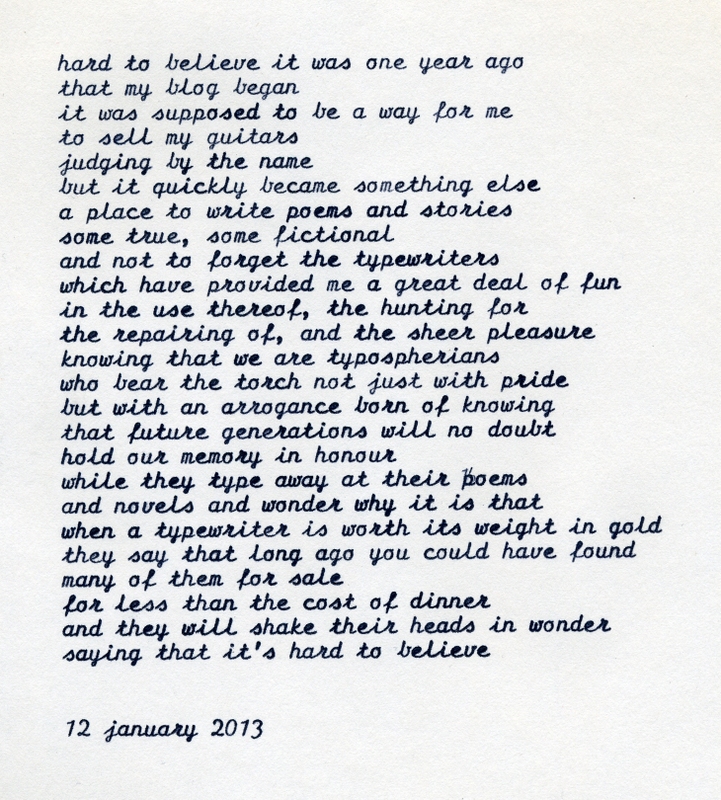 hard to believe it was one year ago
that my blog began
it was supposed to be a way for me
to sell my guitars
judging by the name
but it quickly became something else
a place to write poems and stories
some true, some fictional
and not to forget the typewriters
which have provided me a great deal of fun
in the use thereof, the hunting for
the repairing of, and the sheer pleasure
knowing that we are typospherians
who bear the torch not just with pride
but with an arrogance born of knowing
that future generations will no doubt
hold our memory in honour
while they type away at their poems
and novels and wonder why it is that
when a typewriter is worth its weight in gold
they say that long ago you could have found
many of them for sale
for less than the cost of dinner
and they will shake their heads in wonder
saying that it's hard to believe
12 january 2013